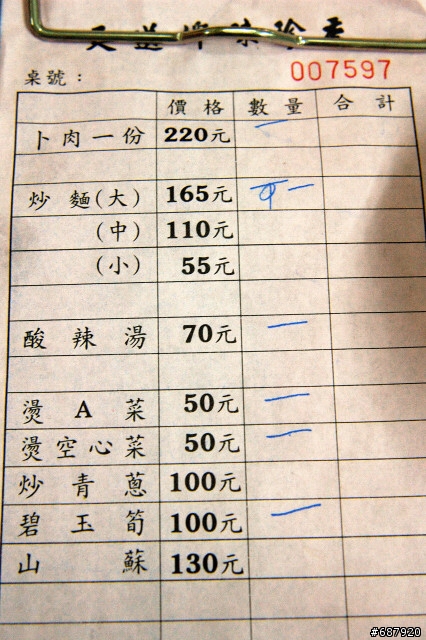 天送埤味珍香
007597
桌號：
價格 數量 合計
卜肉一份 220元 一
炒麵(大) 165元 一
(中) 110元
(小) 55元
酸辣湯 70元 一
燙A菜 50元 一
燙空心菜 50元 一
炒青蔥 100元
碧玉筍 100元 一
山蘇 130元
#687920